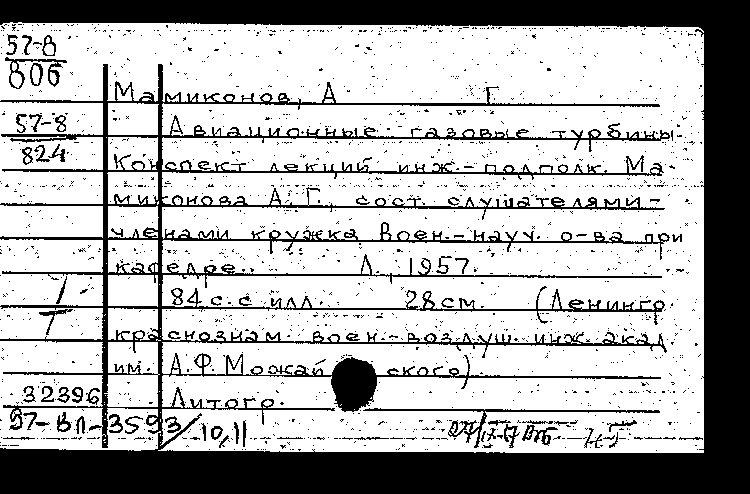 57-8
806
Мамиконов, А Г
57-8
Авиационные газовые турбины.
824
Конспект лекций инж.-подполк. Ма-
миконова А. Г., сост. слушателями-
членами кружка Воен.-науч. о-ва при
кафедре. Л., 1957.
84 с. с илл. 28 см. (Ленингр.
краснознам. воен.-воздуш. инж. акад.
им. А.Ф. Можайского)
32396 Литогр.
57-ВЛ-3593/10,11